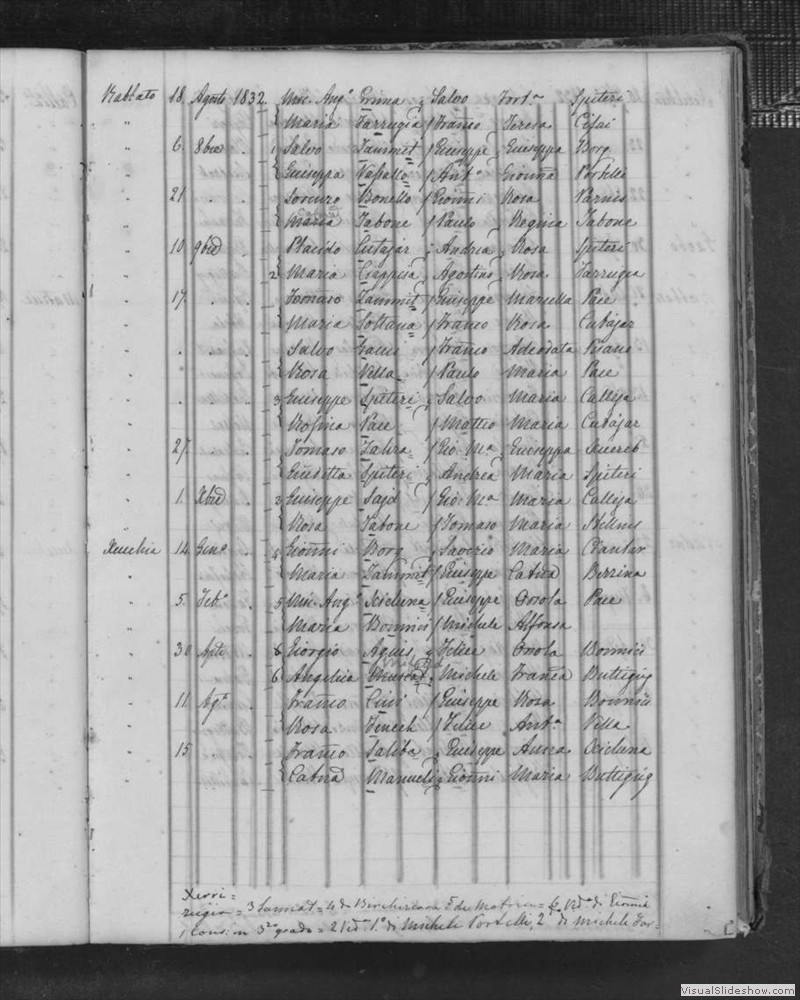 Rabbato 18. Agosto 1832. Mic. Ang° Grima Salvo Fort.a Spiteri
" Maria Farrugia Franco Teresa
" 6. 8bre . 1 Salvo Zammit Giuseppe Giuseppa Borg
" Giuseppa Vassallo Ant.° Gionna Portelli
" 21 . . Lorenzo Bonello Gionni Rosa Parnis
" Maria Tabone Paulo Regina Tabone
" 10 9bre . Placido Cutajar Andrea Rosa Spiteri
" 2 Maria Ciappara Agostino Rosa Farrugia
" 17. . . Tomaso Zammit Giuseppe Marcella Pace
" Maria Soltana Franco Rosa Cutajar
" . . . Salvo Franco Adeodata Pisano
" Rosa Villa Paulo Maria Pace
" . . . 3 Giuseppe Spiteri Salvo Maria Calleja
" Rosina Pace Matteo Maria Cutajar
" 27. . . Tomaso Zahra Gio. M.a Giuseppa Xuereb
" Spiteri Andrea Maria Spiteri
" 1. Xbre . 3 Giuseppe Sajd Gio: M.a Maria Calleja
" Rosa Tabone Tomaso Maria
Xeuchia 14 Gen.° . 4 Gionni Borg Saverio Maria
" Maria Zammit Giuseppe Catna
" 5. Feb.° . 5 Mic. Ang.° Scicluna Giuseppe Orsola Pace
" Maria Bonnici Michele Alfonsa
" 30 Aple . 6 Giorgio Agius Felice Orsola Bonnici
" 6 Angelica Muscat Michele Franca Buttigieg
" 11 Ag.° . Franco Giuseppe Rosa Bonnici
" Rosa Zenech Felice Ant.a Villa
" 15 . . Franco Saliba Giuseppe Anna Scicluna
" Catna Manueli Gionni Maria Buttigieg
Xerri =
= 3 Sannat = 4 da Birchircara 5 da = 6. Vid.a di Gionni
1 Cons: in 3° grado = 2 Vid.a 1° di Michele Portelli, 2° di Michele Far-
VisualSlideshow.com